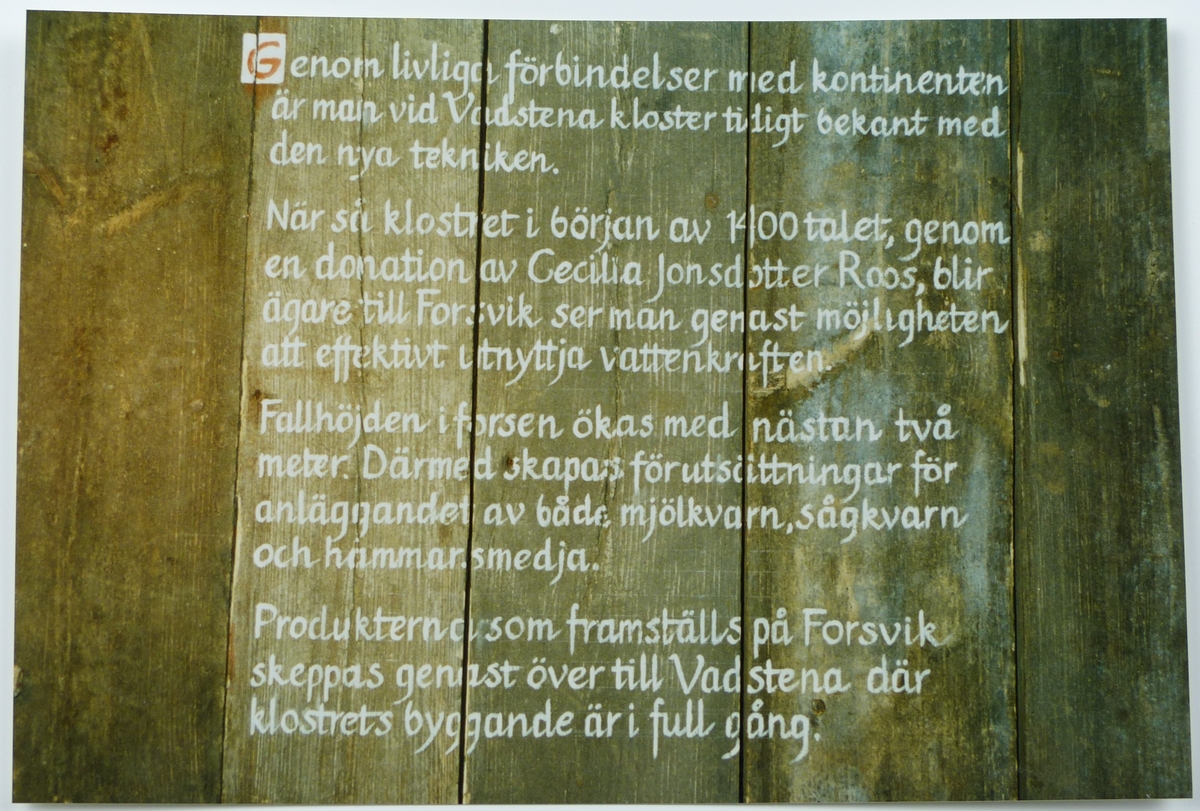 Genom livliga förbindelser med kontinenten
är man vid Vadstena kloster tidigt bekant med
den nya tekniken.
När så klostret i början av 1400 talet, genom
en donation av Cecilia Jonsdotter Roos, blir
ägare till Forsvik ser man genast möjligheten
att effektivt utnyttja vattenkraften.
Fallhöjden i forsen ökas med nästan två
meter. Därmed skapas förutsättningar för
anläggandet av både mjölkvarn, sågkvarn
och hammarsmedja.
Produkterna som framställs på Forsvik
skeppas genast över till Vadstena där
klostrets byggande är i full gång.